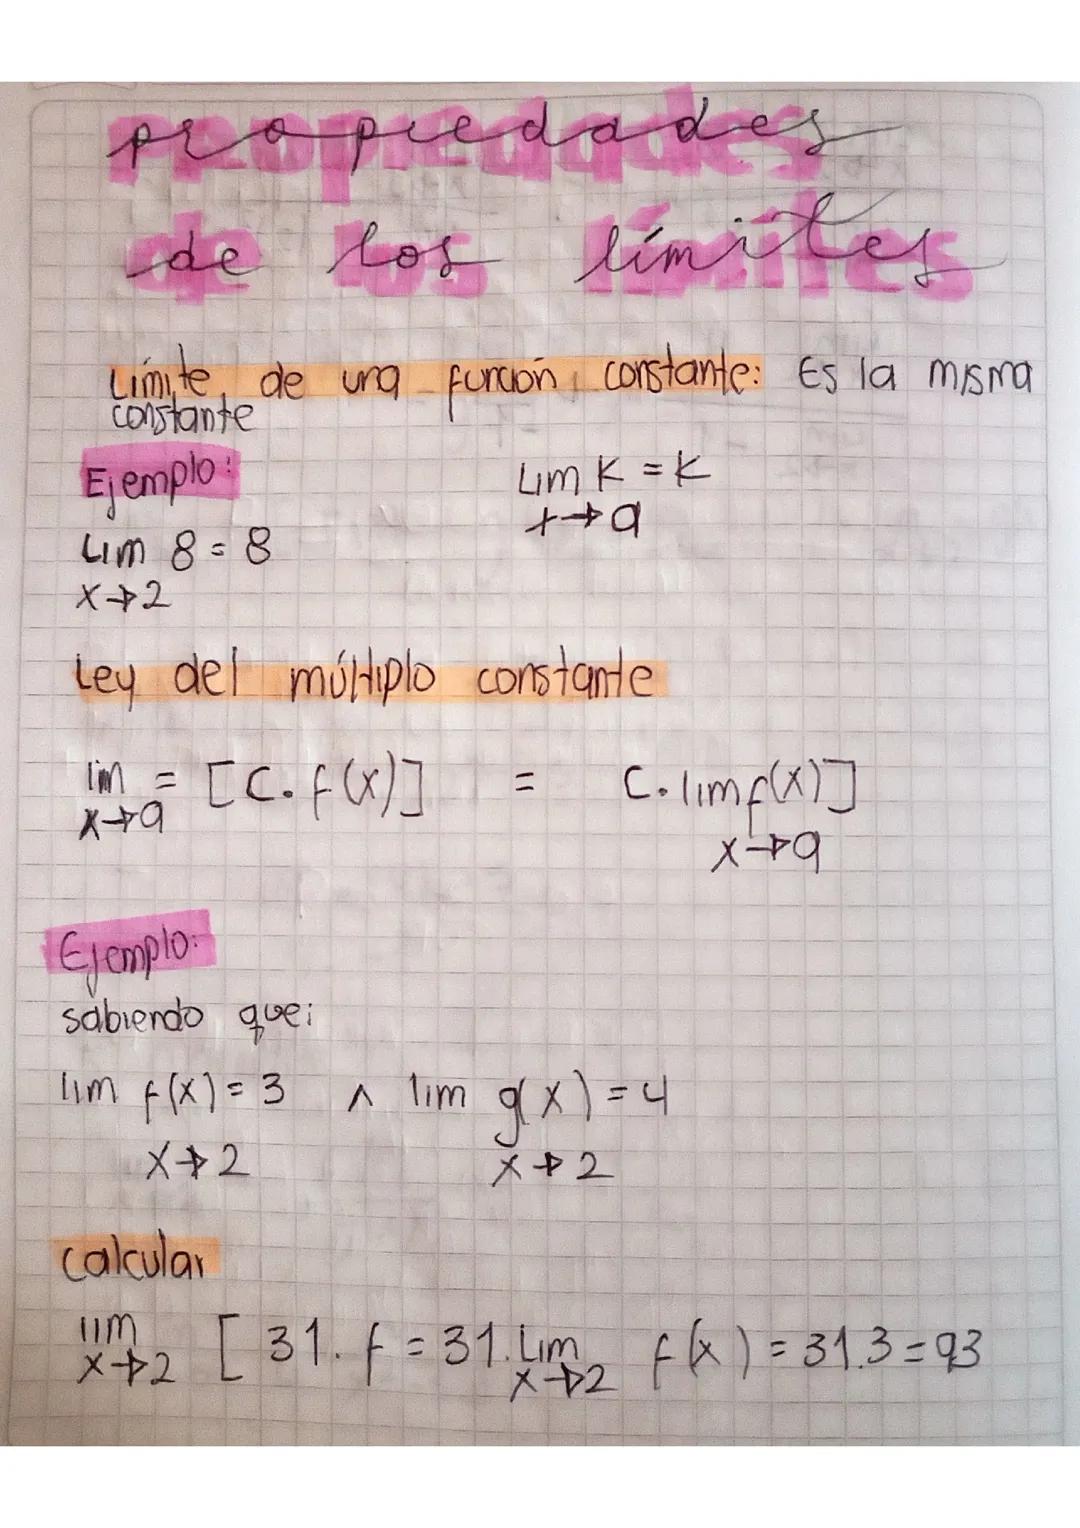 propiedades
de los límites
Límite de una función constante: Es la misma
constante
Ejemplo:
Lim K = K
x→a
Lim 8 = 8
x→2
Ley del múltiplo constante
lim = [C. f(x)] = C. lim f(x)]
x→a x→a
Ejemplo:
sabiendo que;
lim f(x) = 3 ∧ lim g(x) = 4
x→2 x→2
calcular
lim [31. f = 31. Lim f(x) = 31.3 = 93
x→2 x→2